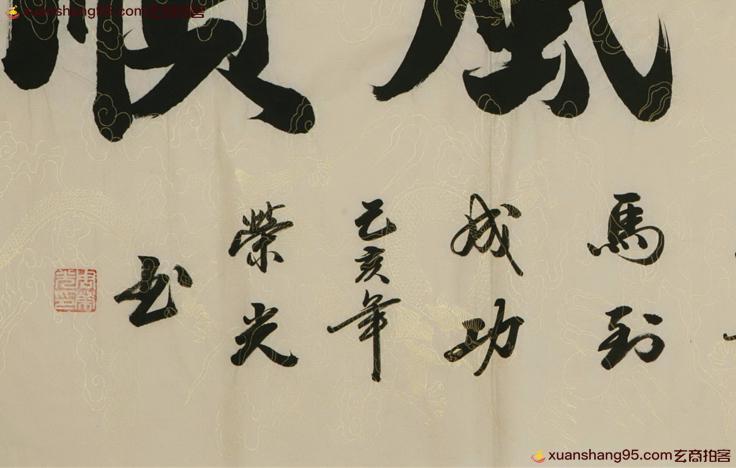 xuanshang95.com玄商拍客
風順
馬到
成功
己亥年
榮光
书
xuanshang95.com玄商拍客